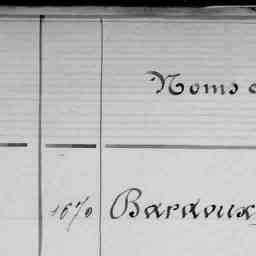 Noms
1670 Bardoux